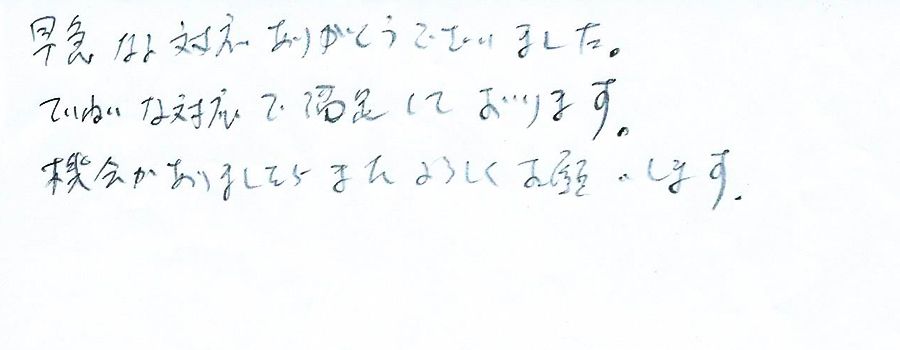 早急な対応ありがとうございました。
ていねいな対応で満足しております。
機会がありましたらまたよろしくお願いします。